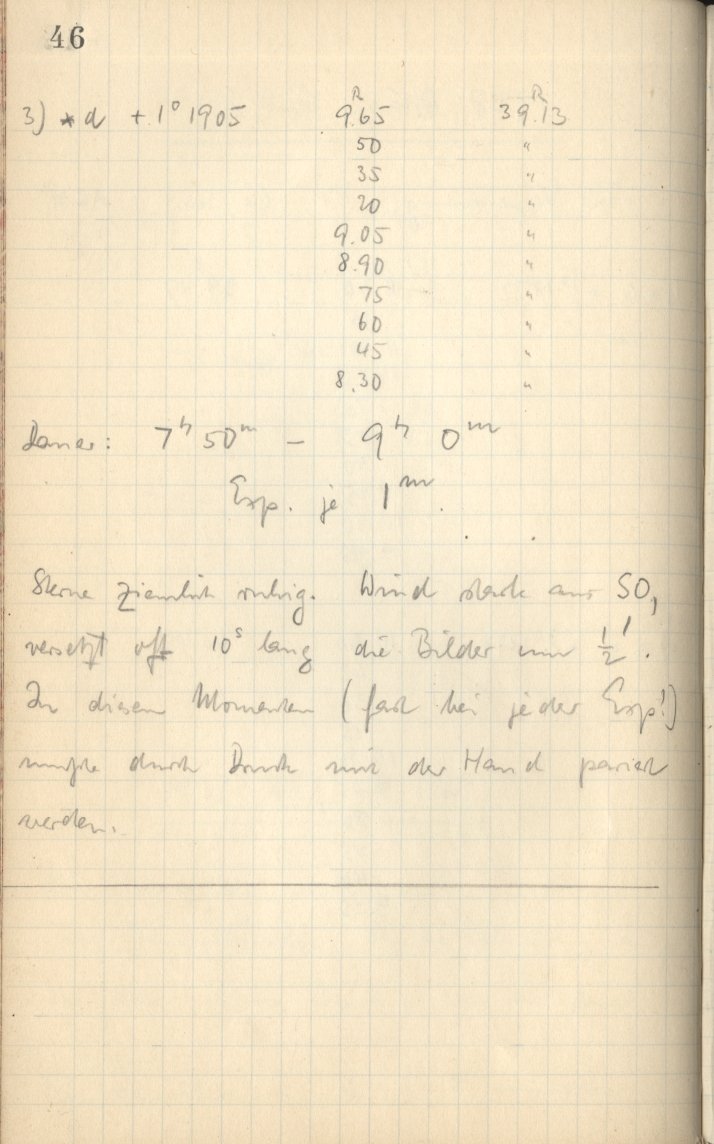 46
3) * d +1° 1905 9.65ᴿ 39.13ᴿ
50 "
35 "
20 "
9.05 "
8.90 "
75 "
60 "
45 "
8.30 "
Dauer: 7ʰ 50ᵐ – 9ʰ 0ᵐ
Exp. je 1ᵐ.
Sterne ziemlich ruhig. Wind stark aus SO,
versetzt oft 10ˢ lang die Bilder um ½'.
In diesen Momenten (fast bei jeder Exp!)
mußte durch Druck mit der Hand pariert
werden.